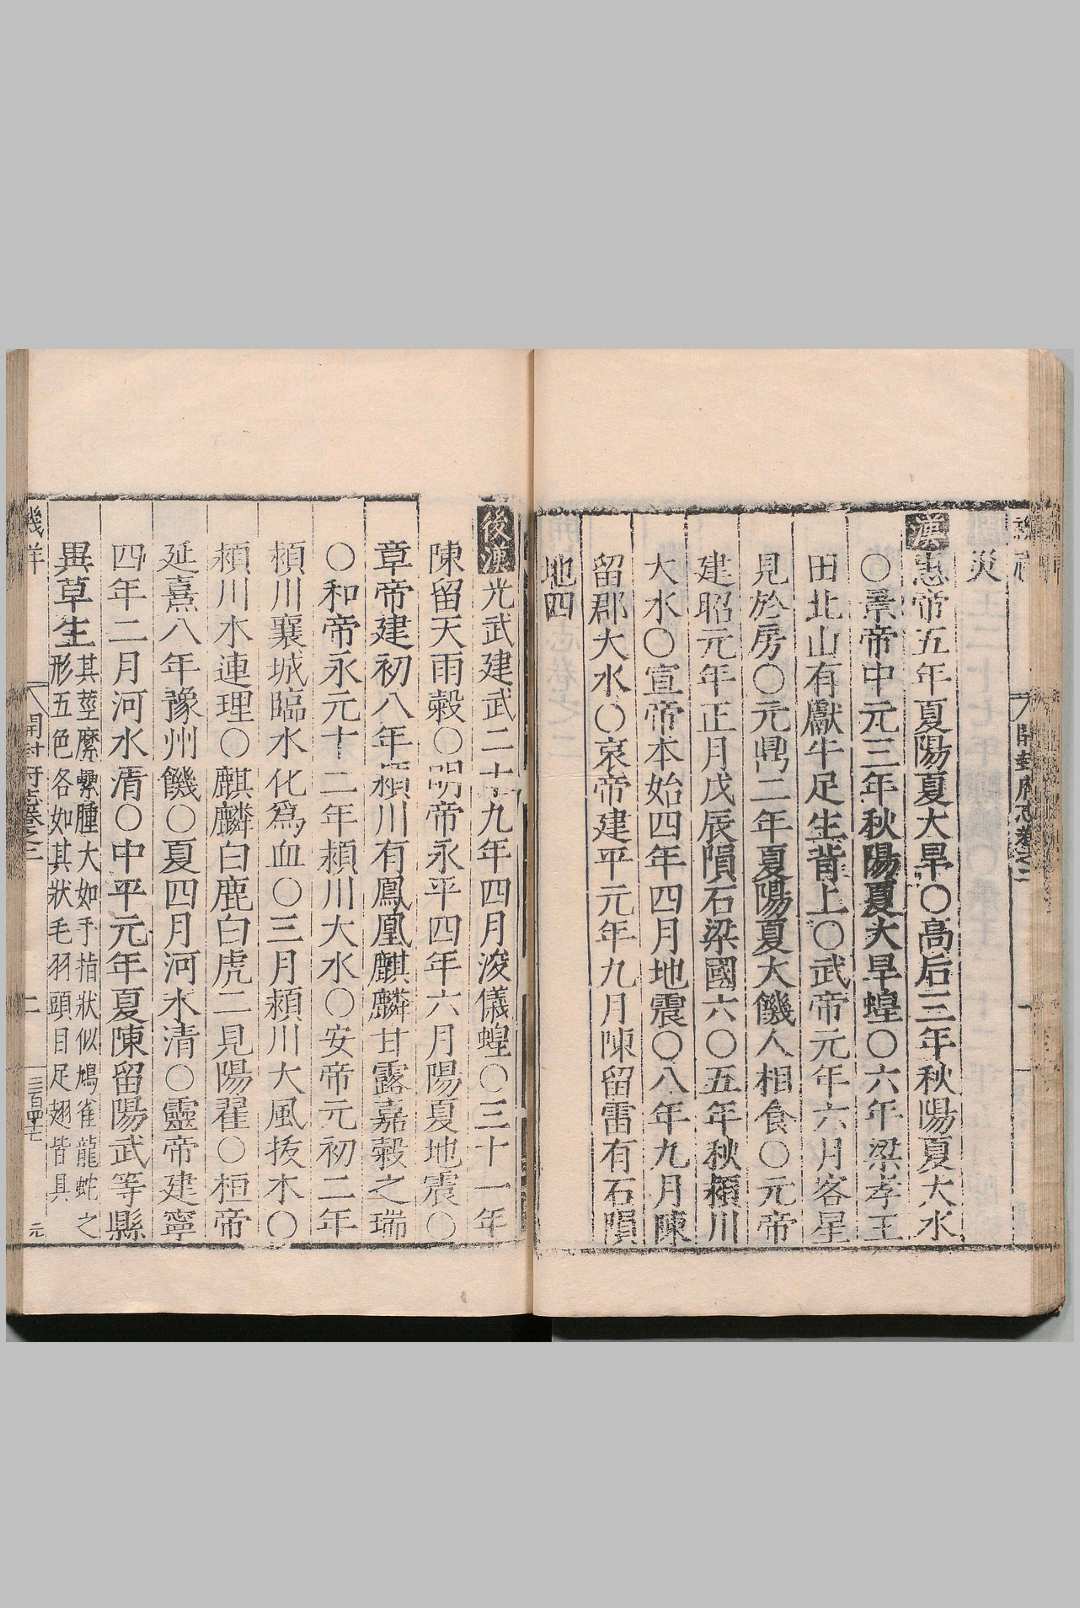 災
漢惠帝五年夏陽夏大旱○高后三年秋陽夏大水
○景帝中元三年秋陽夏大旱蝗○六年梁孝王
田北山有獻牛足生背上○武帝元年六月客星
見於房○元鼎二年夏陽夏大饑人相食○元帝
建昭元年正月戊辰隕石梁國六○五年秋潁川
大水○宣帝本始四年四月地震○八年九月陳
留郡大水○哀帝建平元年九月陳留雷有石隕
地四
後漢光武建武二十九年四月浚儀蝗○三十一年
陳留天雨穀○明帝永平四年六月陽夏地震○
章帝建初八年潁川有鳳凰麒麟甘露嘉穀之瑞
○和帝永元十二年潁川大水○安帝元初二年
潁川襄城臨水化爲血○三月潁川大風拔木○
潁川木連理○麒麟白鹿白虎二見陽翟○桓帝
延熹八年豫州饑○夏四月河水清○靈帝建寧
四年二月河水清○中平元年夏陳留陽武等縣
異草生其莖靡纍腫大如手指狀似鳩雀龍蛇之
形五色各如其狀毛羽頭目足翅皆具
禨祥
開封府志卷之二
二
三百四七
元